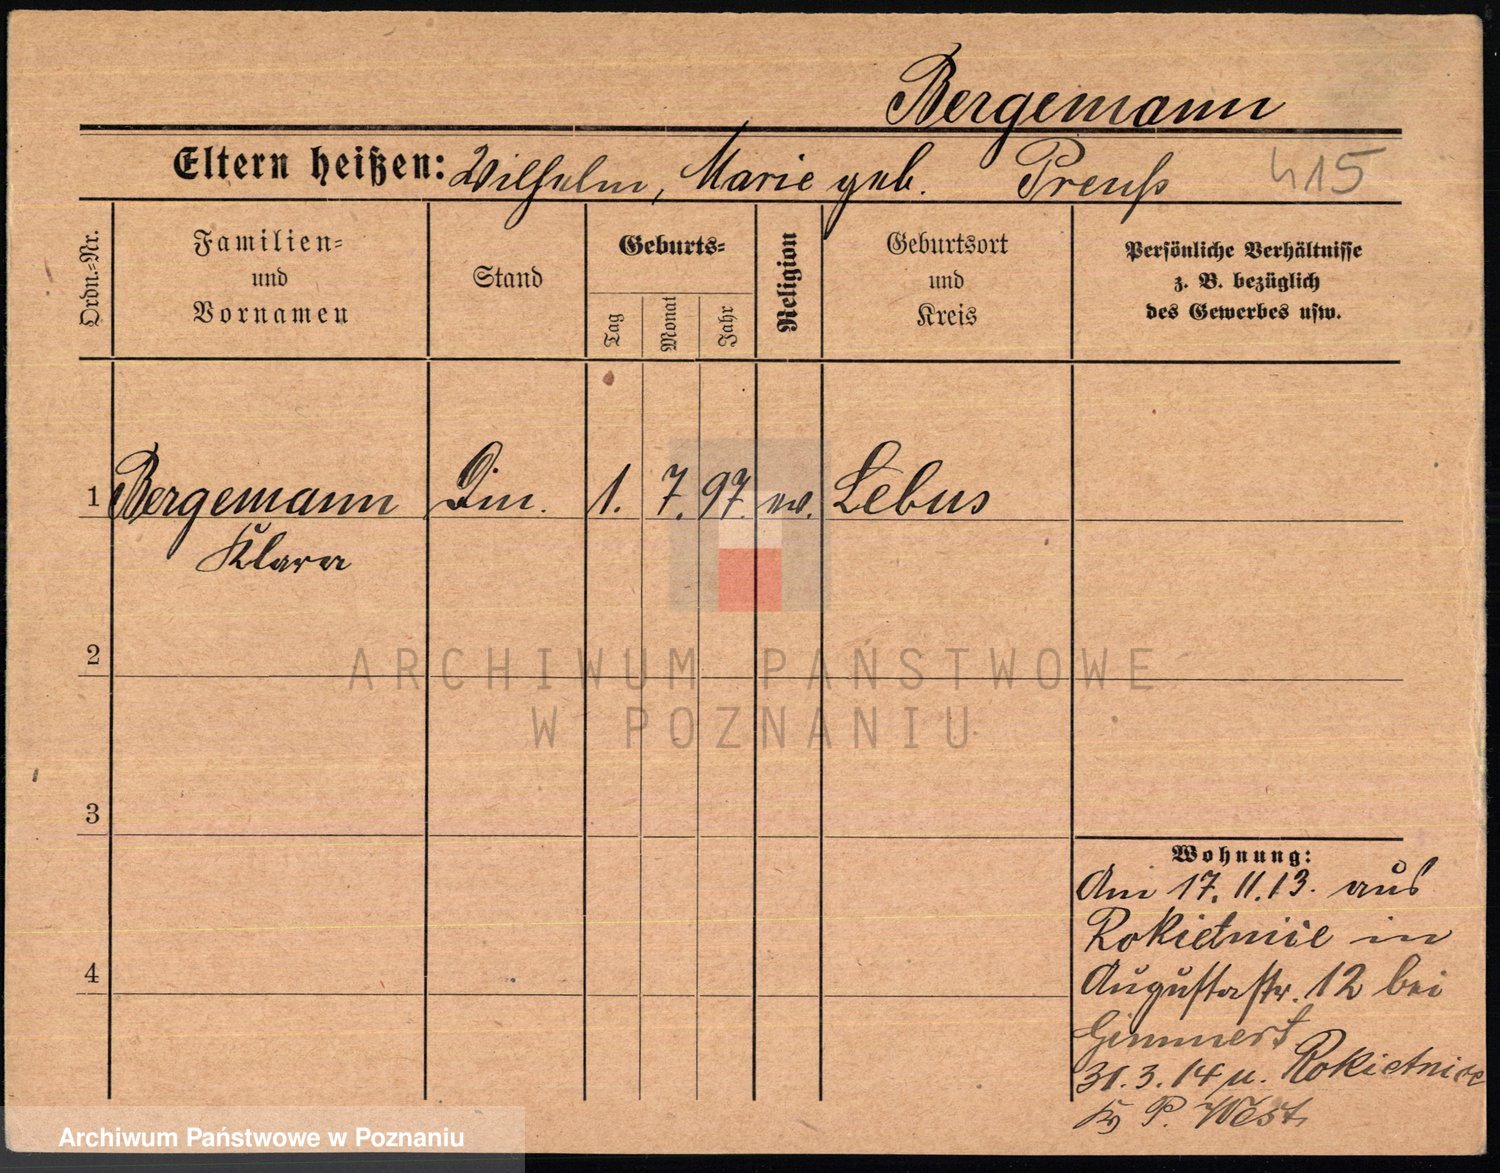 Bergemann
Eltern heißen: Wilhelm, Marie geb. Preuß 415
Ordn.=Nr.
Familien=
und
Vornamen
Stand
Geburts=
Tag
Monat
Jahr
Religion
Geburtsort
und
Kreis
Persönliche Verhältnisse
z. B. bezüglich
des Gewerbes usw.
1 Bergemann Din. 1. 7. 97. ev. Lebus
Klara
2
ARCHIWUM PAŃSTWOWE
W POZNANIU
3
Wohnung:
Am 17.11.13. aus
Rokietnice in
4
Augustastr. 12 bei
Gimmert
31.3.14 n. Rokietnice
Kr P. West
Archiwum Państwowe w Poznaniu